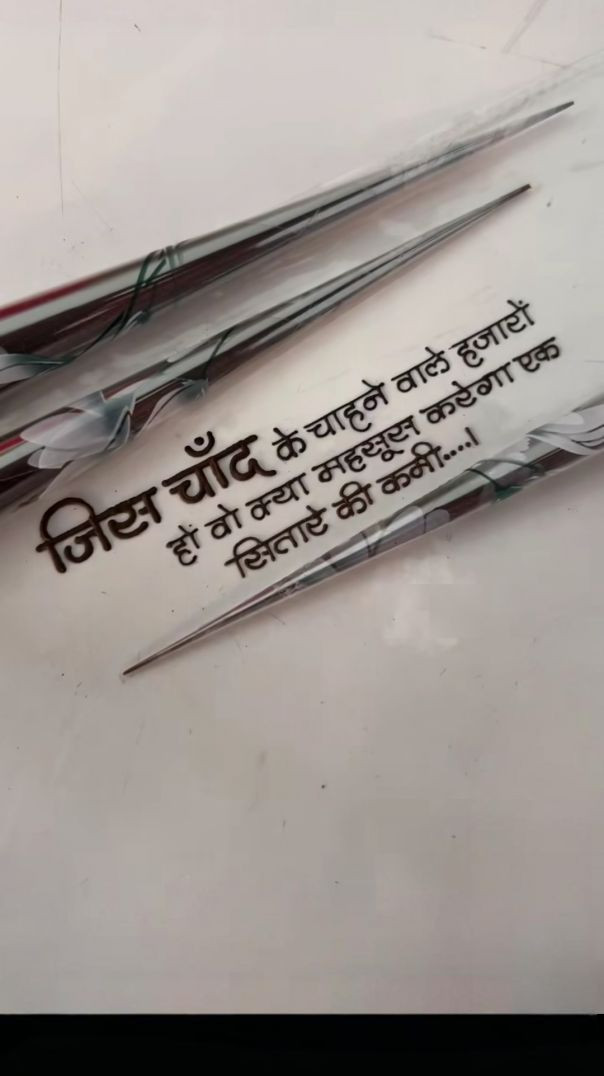 जिस चाँद के चाहने वाले हजारों
हों वो क्या महसूस करेगा एक
सितारे की कमी....।